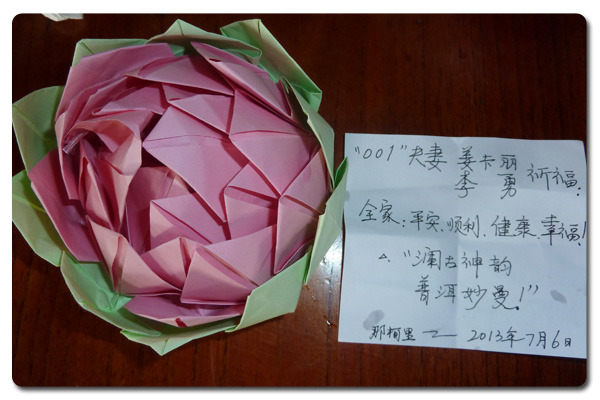 "001"夫妻 姜卡丽
李 勇 祈福:
全家:平安、顺利、健康、幸福!
"澜古神韵
普洱妙曼!"
那柯里 — 2013年7月6日